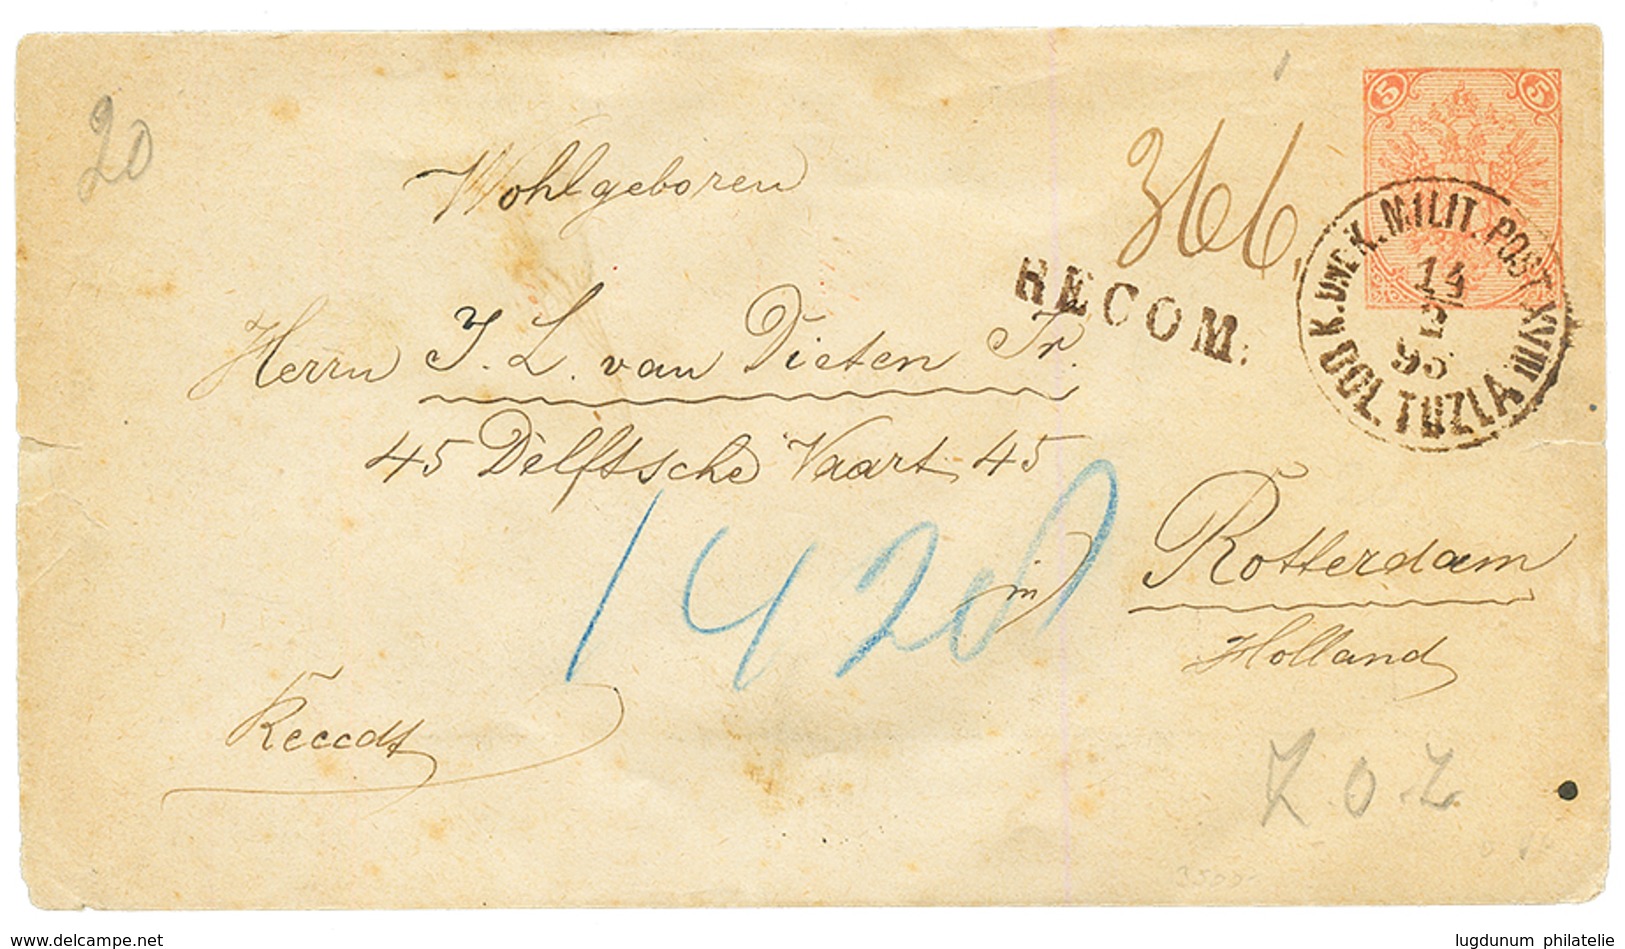 20
5 5
366
Wohlgeboren
RECOM:
K. UND K. MILIT. POST XVIII
14
95
DOL. TUZLA
Herrn J. L. van Dieten Jr.
45 Delftsche Vaart 45
1420
in Rotterdam
Holland
Reccdt
Z.O.Z
lugdunum philatelie
delcampe.net